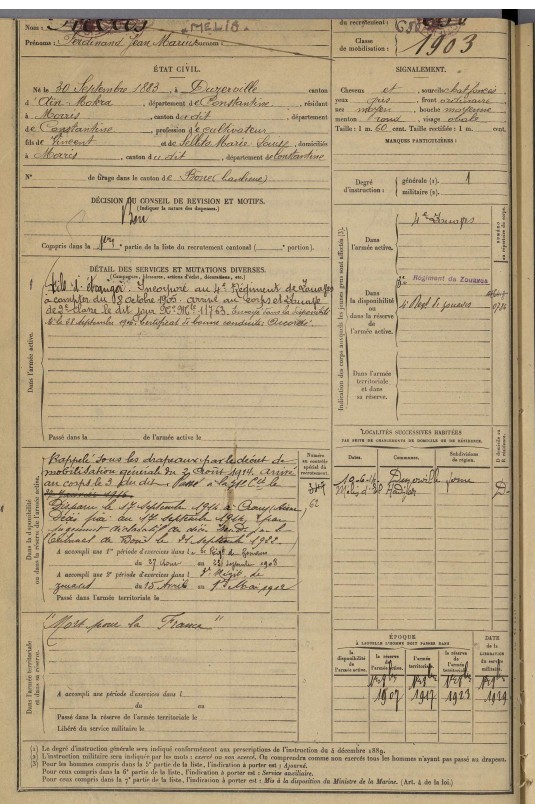 Nom : MELIA.
Prénoms : Ferdinand Jean Marius Surnom :
du recrutement :
Classe de mobilisation : 1903
ÉTAT CIVIL.
Né le 30 Septembre 1883, à Duzerville canton
d'Aïn-Mokra, département de Constantine, résidant
à Morris, canton du dit, département
de Constantine, profession de cultivateur
fils de Vincent et de Marie Louise, domiciliés
à Morris, canton du dit, département de Constantine
N° de tirage dans le canton de Bone
SIGNALEMENT.
Cheveux et sourcils
yeux gris, front ordinaire
nez moyen, bouche moyenne
menton rond, visage ovale
Taille : 1 m. 60 cent. Taille rectifiée : 1 m. cent.
MARQUES PARTICULIÈRES :
Degré d'instruction : générale (1). 1
militaire (2).
DÉCISION DU CONSEIL DE RÉVISION ET MOTIFS.
(Indiquer la nature des dispenses.)
Bon
Compris dans la 1ère partie de la liste du recrutement cantonal ( portion).
DÉTAIL DES SERVICES ET MUTATIONS DIVERSES.
(Campagnes, blessures, actions d'éclat, décorations, etc.)
Dans l'armée active.
Fils d'étranger. Incorporé au 4e Régiment de Zouaves
à compter du 8 octobre 1905 arrivé au corps et zouave
de 2e classe le dit jour No Mle 11763. Envoyé dans la disponibilité
Certificat de bonne conduite : Accordé.
Passé dans l de l'armée active le
Indication des corps auxquels les jeunes gens sont affectés (3).
Dans l'armée active.
4e Zouaves
Dans la disponibilité ou dans la réserve de l'armée active.
Régiment de Zouaves
de zouaves
Dans l'armée territoriale et dans sa réserve.
LOCALITÉS SUCCESSIVES HABITÉES
PAR SUITE DE CHANGEMENTS DE DOMICILE OU DE RÉSIDENCE.
Dates. Communes. Subdivisions de région.
Duzerville
Dans la disponibilité ou dans la réserve de l'armée active.
Numéro au contrôle spécial du recrutement.
Rappelé sous les drapeaux par le décret de
mobilisation générale du 2 Août 1914. Arrivé
au corps le 3 du dit.
Disparu le 17 septembre 1914 à Crouy (Aisne)
Décès fixé au 17 septembre 1914, par
jugement déclaratif de décès rendu par le
Tribunal de Bône le 21 septembre 1922.
A accompli une 1re période d'exercices dans le
du 27 Août au septembre 1908
A accompli une 2e période d'exercices dans l
zouaves du 15 Avril au 1er Mai 1912
Passé dans l'armée territoriale le
Dans l'armée territoriale et dans sa réserve.
"Mort pour la France"
A accompli une période d'exercices dans l
du au
Passé dans la réserve de l'armée territoriale le
Libéré du service militaire le
ÉPOQUE
À LAQUELLE L'HOMME DOIT PASSER DANS
la disponibilité de l'armée active. la réserve de l'armée active. l'armée territoriale. la réserve de l'armée territoriale. DATE DE LA LIBÉRATION DU SERVICE militaire.
1907 1917 1923 1929
(1) Le degré d'instruction générale sera indiqué conformément aux prescriptions de l'instruction du 4 décembre 1889.
(2) L'instruction militaire sera indiquée par les mots : exercé ou non exercé. On comprendra comme non exercés tous les hommes n'ayant pas passé au drapeau.
(3) Pour les hommes compris dans la 5e partie de la liste, l'indication à porter est : Ajourné.
Pour ceux compris dans la 6e partie de la liste, l'indication à porter est : Service auxiliaire.
Pour ceux compris dans la 7e partie de la liste, l'indication à porter est : Mis à la disposition du Ministre de la Marine. (Art. 4 de la loi.)